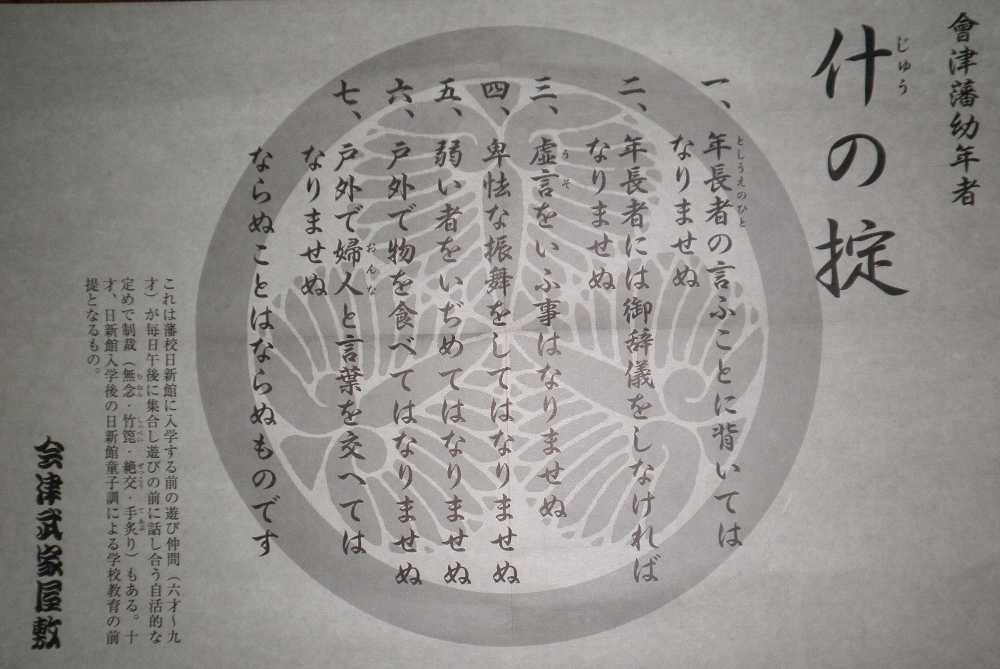 會津藩幼年者
什の掟
じゅう
一、年長者の言ふことに背いては
としうえのひと
なりませぬ
二、年長者には御辞儀をしなければ
なりませぬ
三、虚言をいふ事はなりませぬ
うそ
四、卑怯な振舞をしてはなりませぬ
五、弱い者をいぢめてはなりませぬ
六、戸外で物を食べてはなりませぬ
七、戸外で婦人と言葉を交へては
おんな
なりませぬ
ならぬことはならぬものです
これは藩校日新館に入学する前の遊び仲間(六才〜九
才)が毎日午後に集合し遊びの前に話し合う自活的な
定めで制裁(無念・竹箆・絶交・手炙り)もある。十
才、日新館入学後の日新館童子訓による学校教育の前
提となるもの。
会津武家屋敷